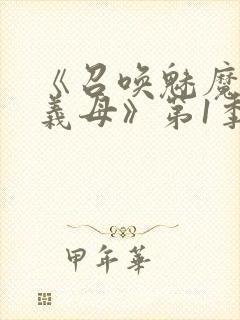 《召唤魅魔
義母》第1季
甲年華